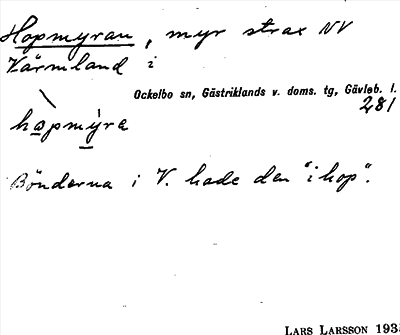 Hopmyran, myr strax NV
Värmland i
Ockelbo sn, Gästriklands v. doms. tg, Gävleb. l.
281
hopmýra
Bönderna i V. hade den "i hop".
LARS LARSSON 193